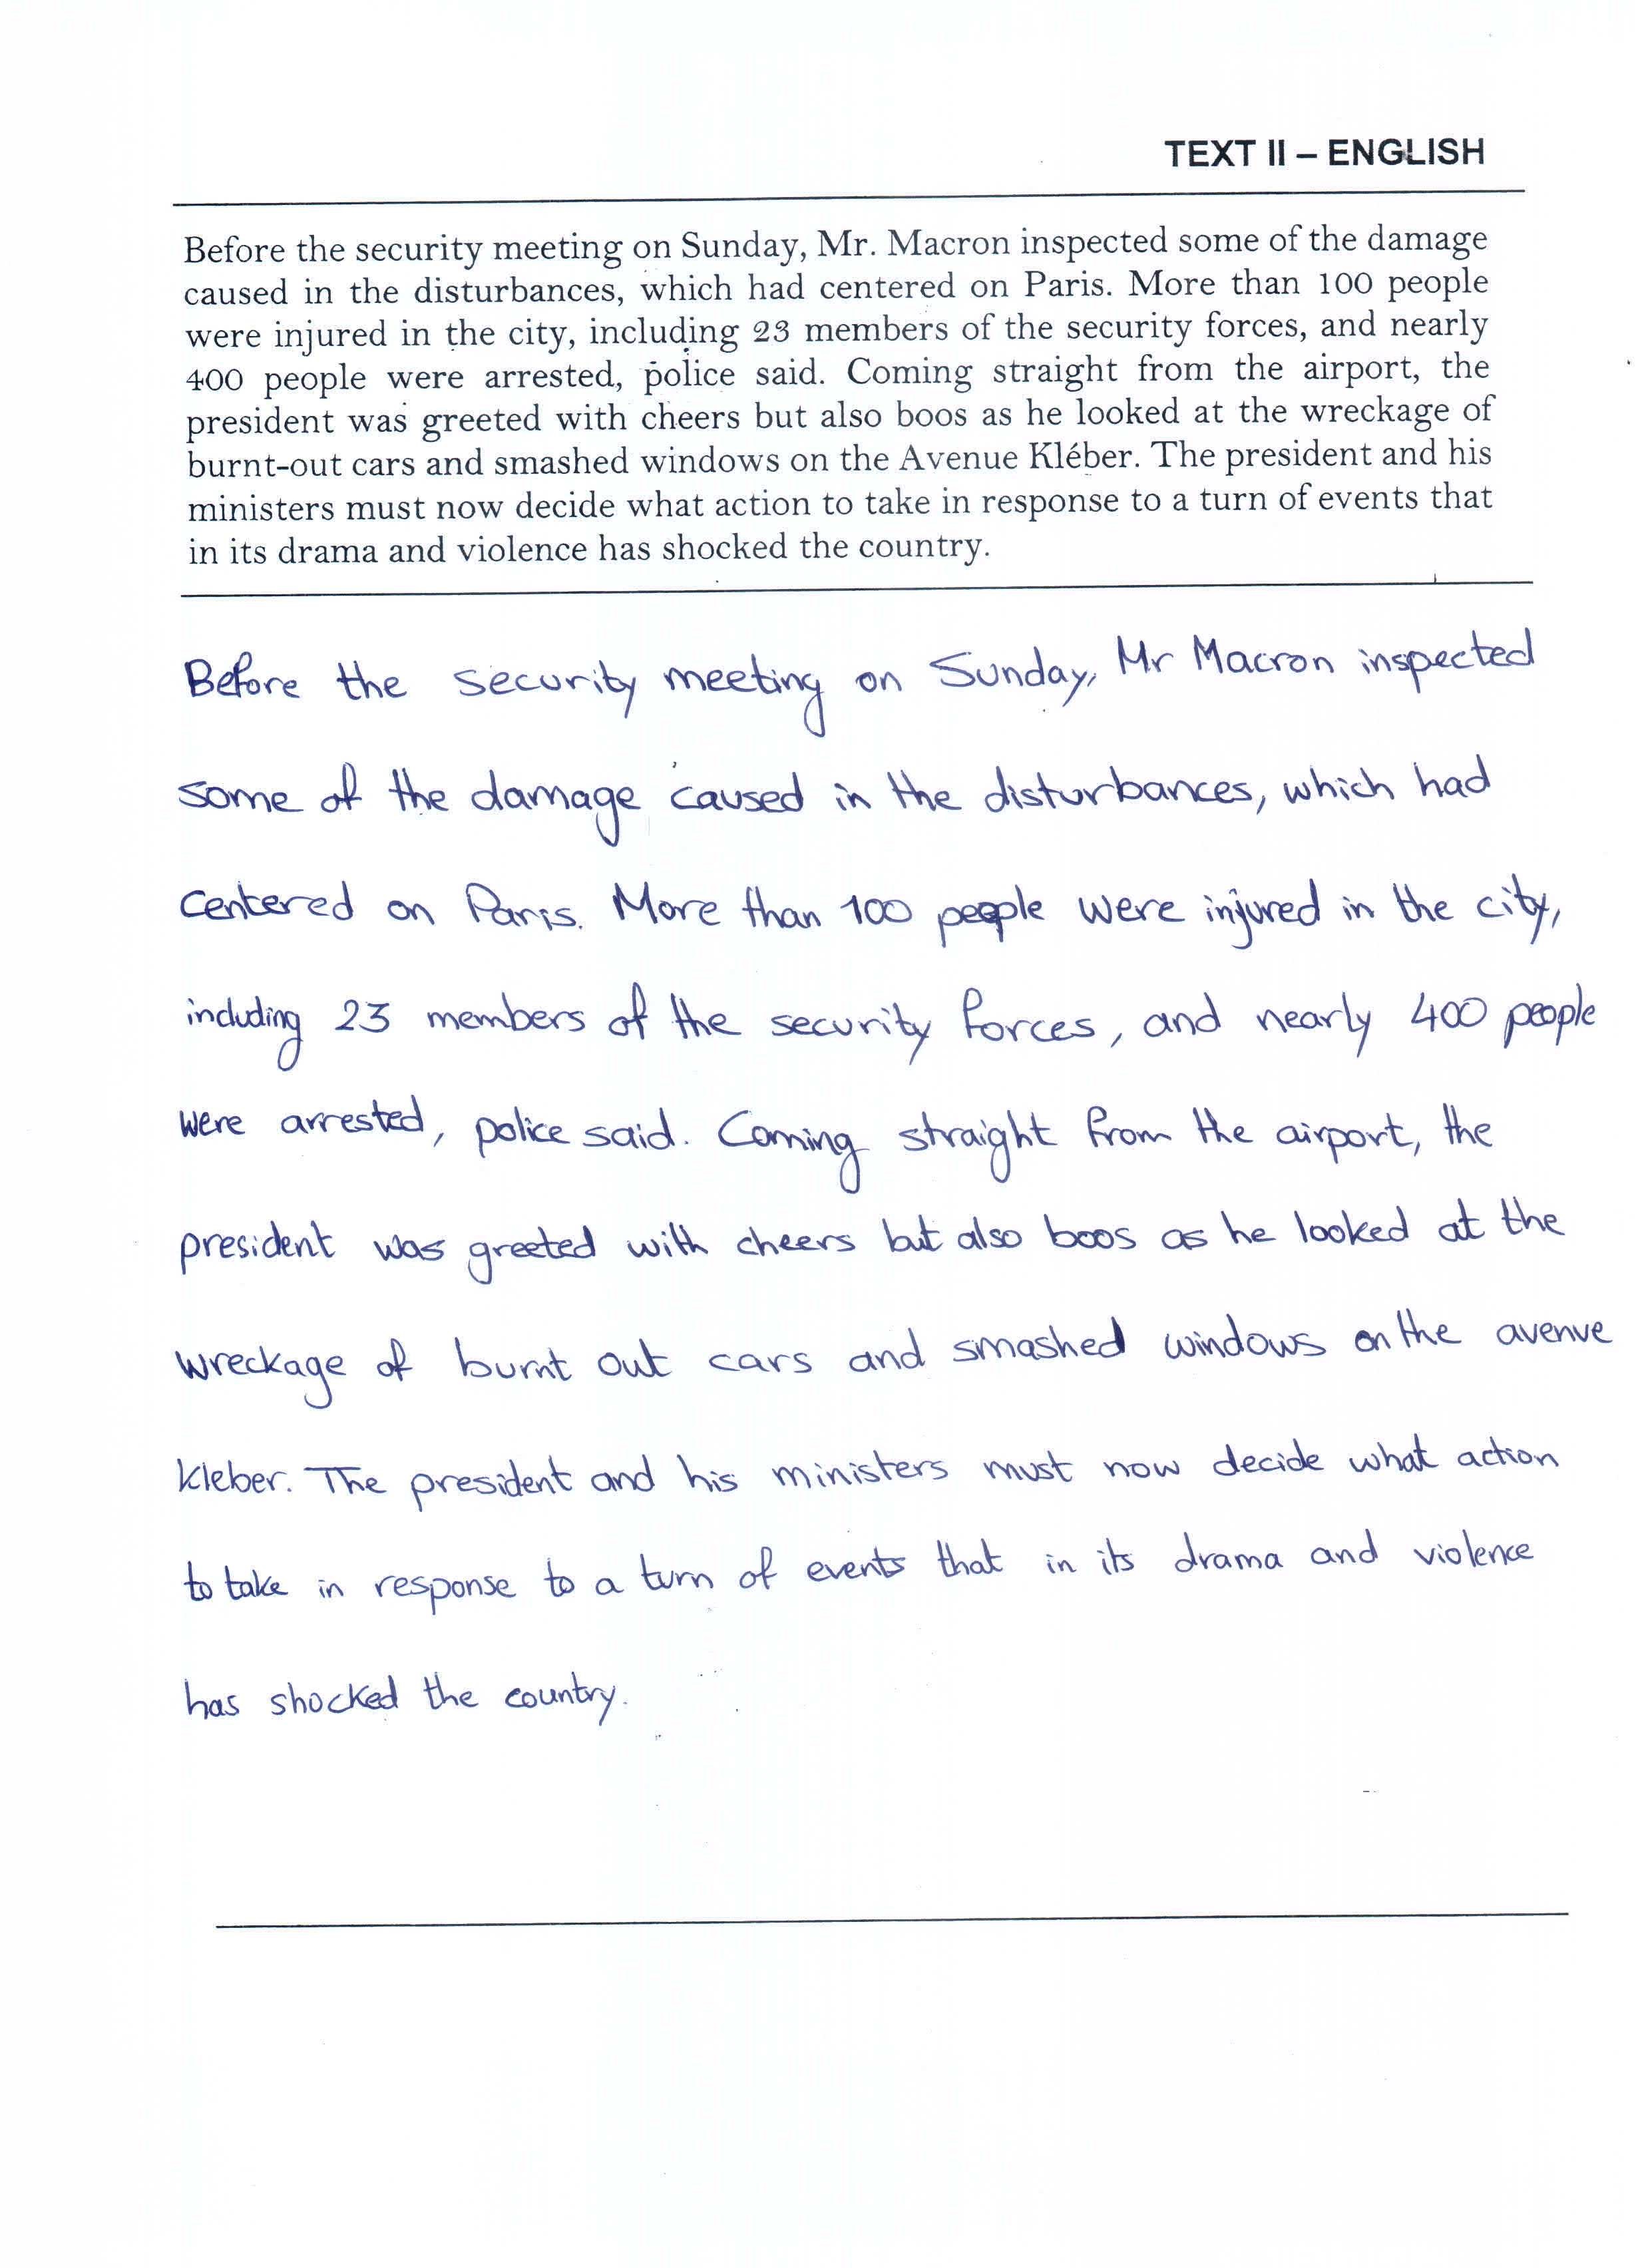 TEXT II – ENGLISH
Before the security meeting on Sunday, Mr. Macron inspected some of the damage
caused in the disturbances, which had centered on Paris. More than 100 people
were injured in the city, including 23 members of the security forces, and nearly
400 people were arrested, police said. Coming straight from the airport, the
president was greeted with cheers but also boos as he looked at the wreckage of
burnt-out cars and smashed windows on the Avenue Kléber. The president and his
ministers must now decide what action to take in response to a turn of events that
in its drama and violence has shocked the country.
Before the security meeting on Sunday, Mr Macron inspected
some of the damage caused in the disturbances, which had
centered on Paris. More than 100 people were injured in the city,
including 23 members of the security forces, and nearly 400 people
were arrested, police said. Coming straight from the airport, the
president was greeted with cheers but also boos as he looked at the
wreckage of burnt out cars and smashed windows on the avenue
Kleber. The president and his ministers must now decide what action
to take in response to a turn of events that in its drama and violence
has shocked the country.